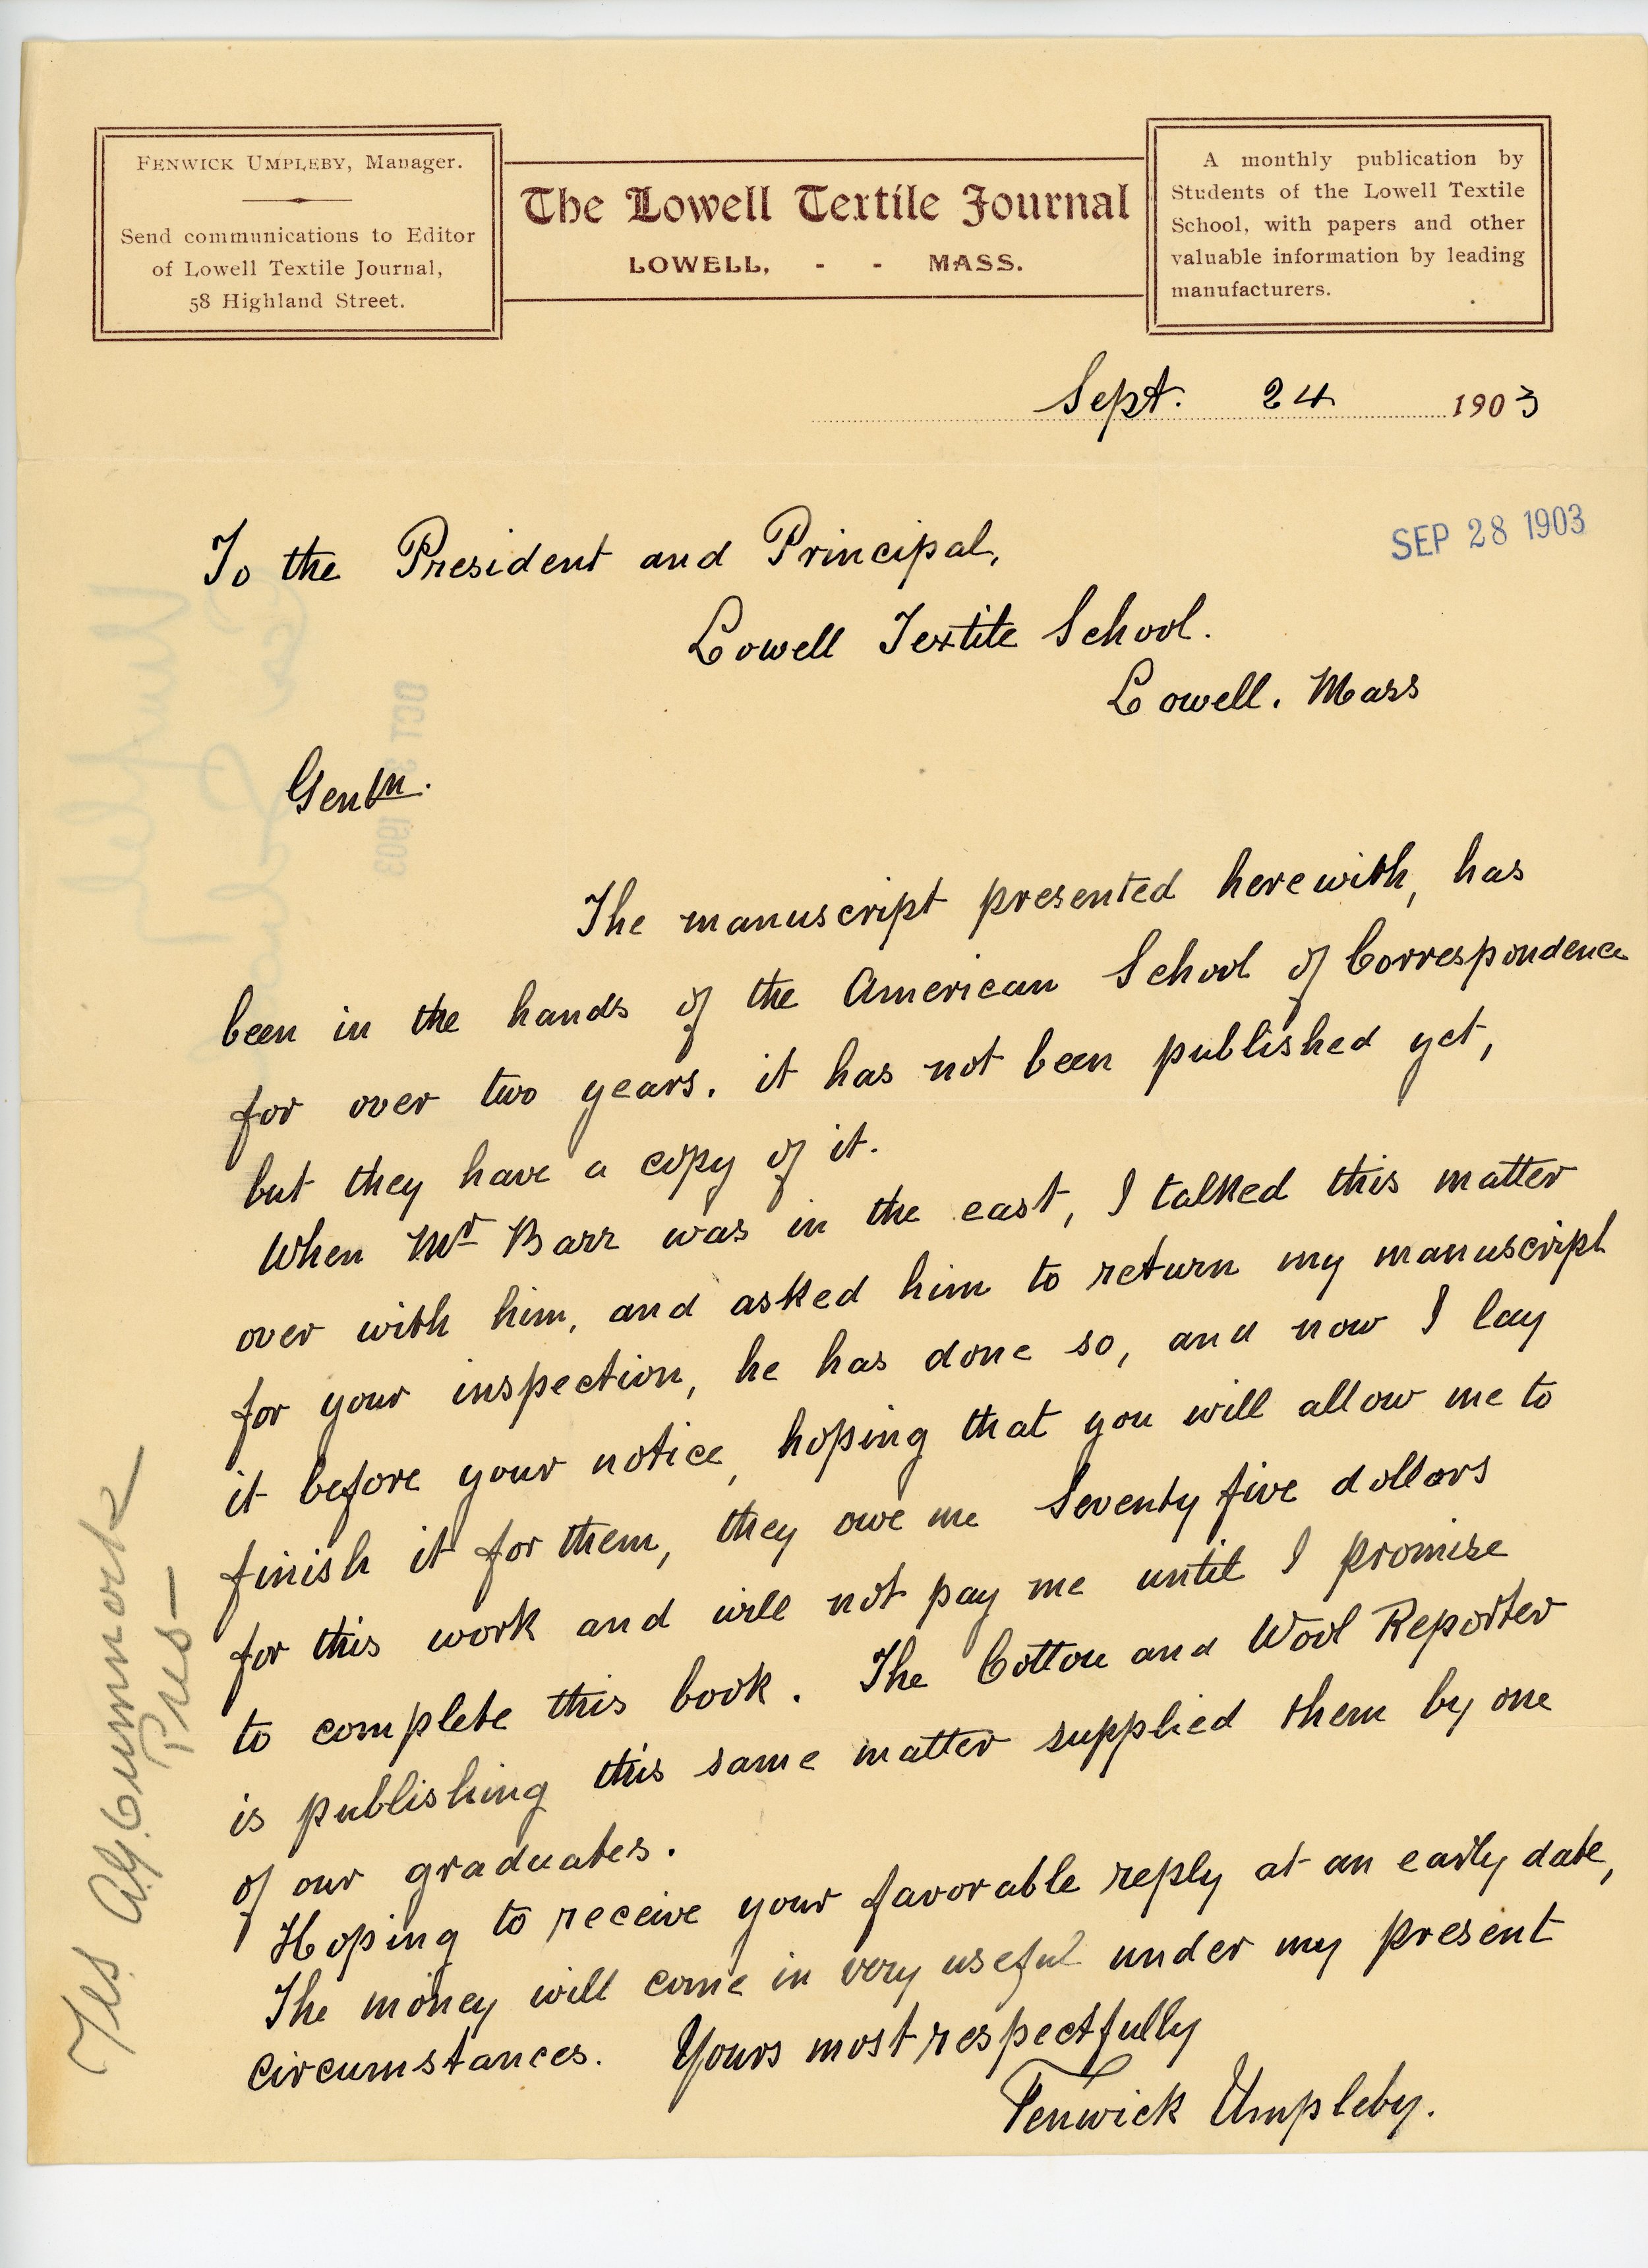 FENWICK UMPLEBY, Manager.
Send communications to Editor
of Lowell Textile Journal,
58 Highland Street.
The Lowell Textile Journal
LOWELL, - - MASS.
A monthly publication by
Students of the Lowell Textile
School, with papers and other
valuable information by leading
manufacturers.
Sept. 24 1903
SEP 28 1903
To the President and Principal,
Lowell Textile School.
Lowell. Mass
Gentn.
The manuscript presented herewith, has
been in the hands of the American School of Correspondence
for over two years. it has not been published yet,
but they have a copy of it.
When Mr Barr was in the east, I talked this matter
over with him, and asked him to return my manuscript
for your inspection, he has done so, and now I lay
it before your notice, hoping that you will allow me to
finish it for them, they owe me Seventy five dollars
for this work and will not pay me until I promise
to complete this book. The Cotton and Wool Reporter
is publishing this same matter supplied them by one
of our graduates.
Hoping to receive your favorable reply at an early date,
The money will come in very useful under my present
circumstances. Yours most respectfully
Fenwick Umpleby.
Yes A.G. Cumnock
Pres—
OCT 1903